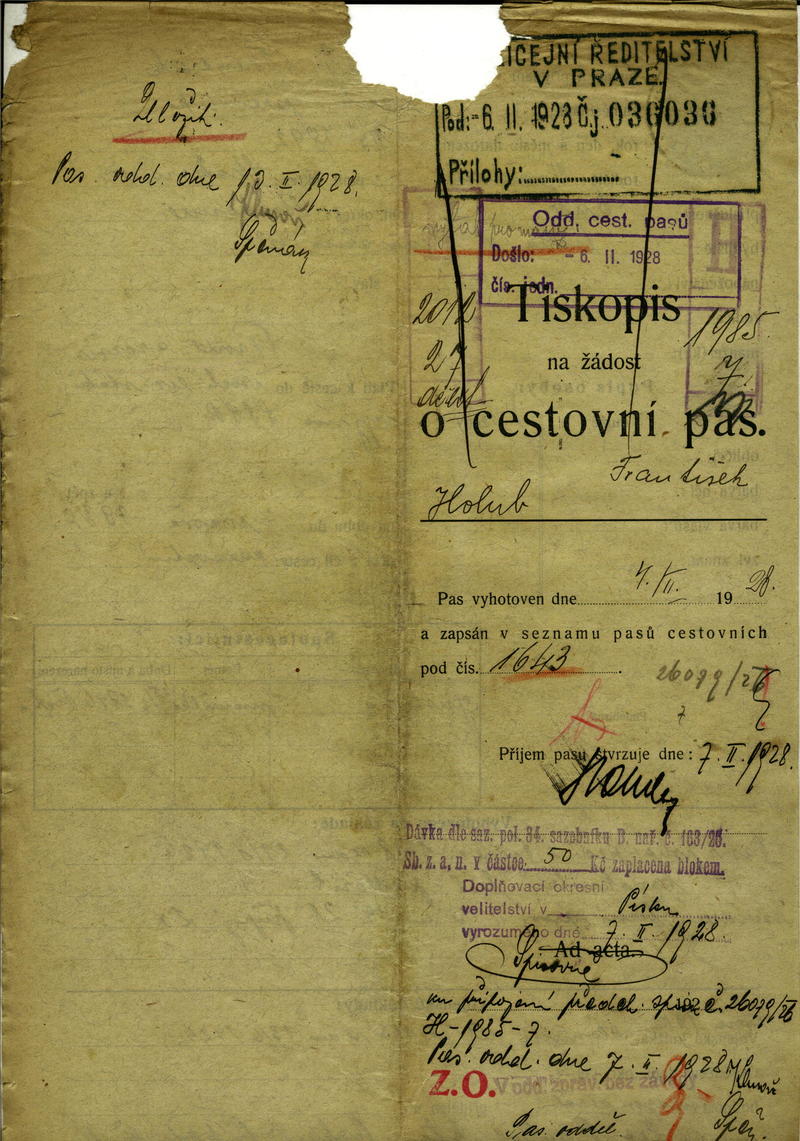 Uložiti.
Pas. odd. dne 13. II. 1928.
POLICEJNÍ ŘEDITELSTVÍ
V PRAZE.
Pod: -6. II. 1928 Čj. 036036
Přílohy:
Odd. cest. pasů
Došlo: -6. II. 1928
čís. jedn.
2012
27
Tiskopis
1985
7
na žádost
o cestovní pas.
František
Holub
Pas vyhotoven dne 7./II. 1928.
a zapsán v seznamu pasů cestovních
pod čís. 1643.
26079/26
7
Příjem pasu stvrzuje dne: 7. II. 1928.
Dávka dle saz. pol. 34. sazebníku B. nař. č. 163/26.
Sb. z. a. n. v částce 50 Kč zaplacena blokem.
Doplňovací okresní
velitelství v Písku
vyrozuměno dne 7. II. 1928.
Ad acta.
Spisovně
ku připojení předch. spisů č. 26079/26
H-1985-7.
Pas. odd. dne 7. II. 1928
Z.O. V odd. zpráv. bez závady
Pas. odděl.